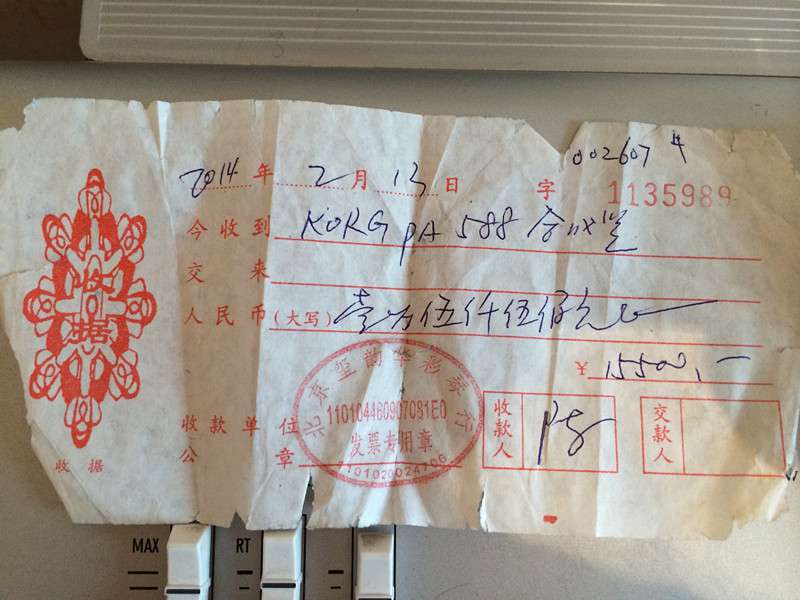 002607
2014 年 2 月 13 日 字 1135989
今收到 KORG PA 588 合成器
交来
人民币(大写) 壹万伍仟伍佰元
¥ 15500.—
收款单位
公章
收款人
交款人
110104460907081E0
发票专用章
1101020024706
收据
收据
MAX RT